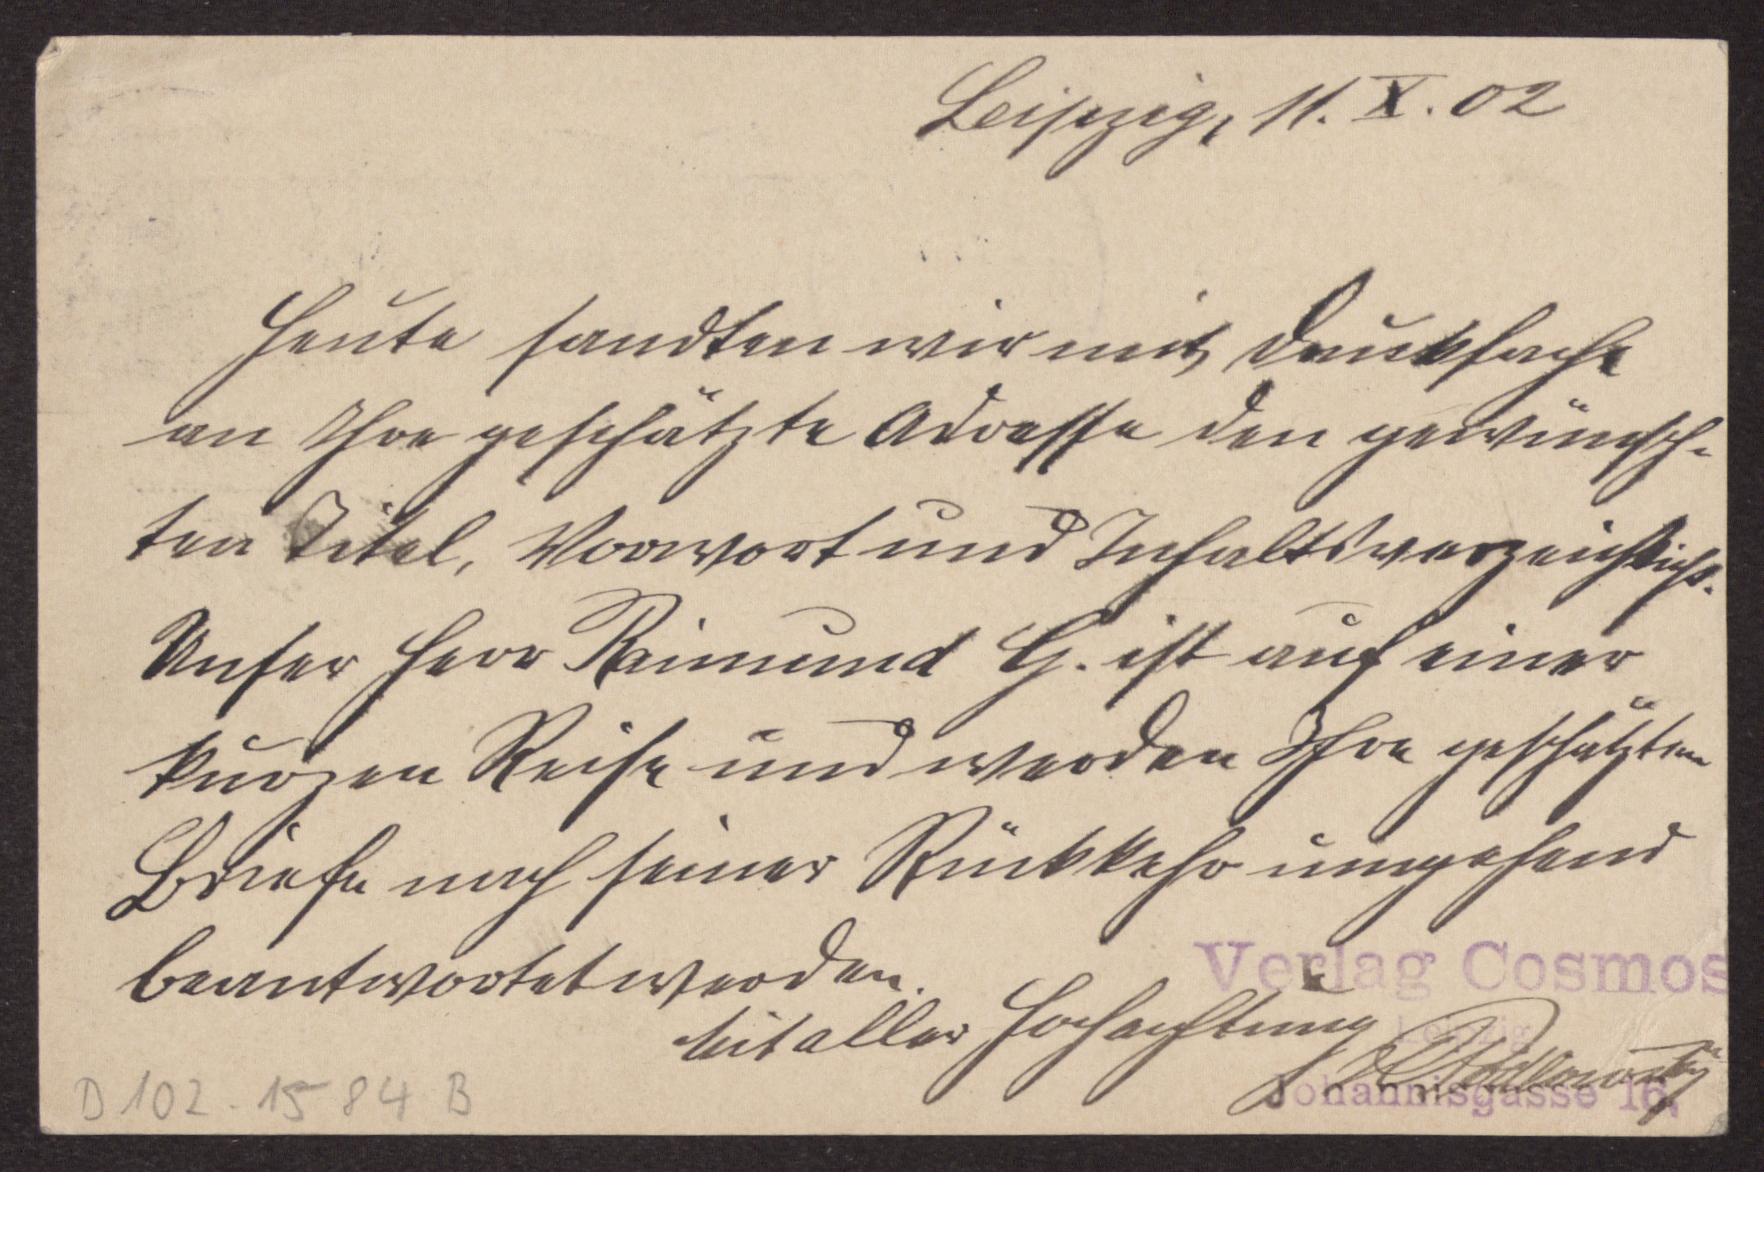 Leipzig, 11. X. 02
Heute sandten wir mit Drucksache
an Ihre geschätzte Adresse den gewünsch-
ten Titel, Vorwort und Inhaltsverzeichnis.
Unser Herr Raimund G. ist auf einer
kurzen Reise und werden Ihre geschätzten
Briefe nach seiner Rückkehr umgehend
beantwortet werden.
Mit aller Hochachtung
Verlag Cosmos
Leipzig
Johannisgasse 16.
D 102-1584 B